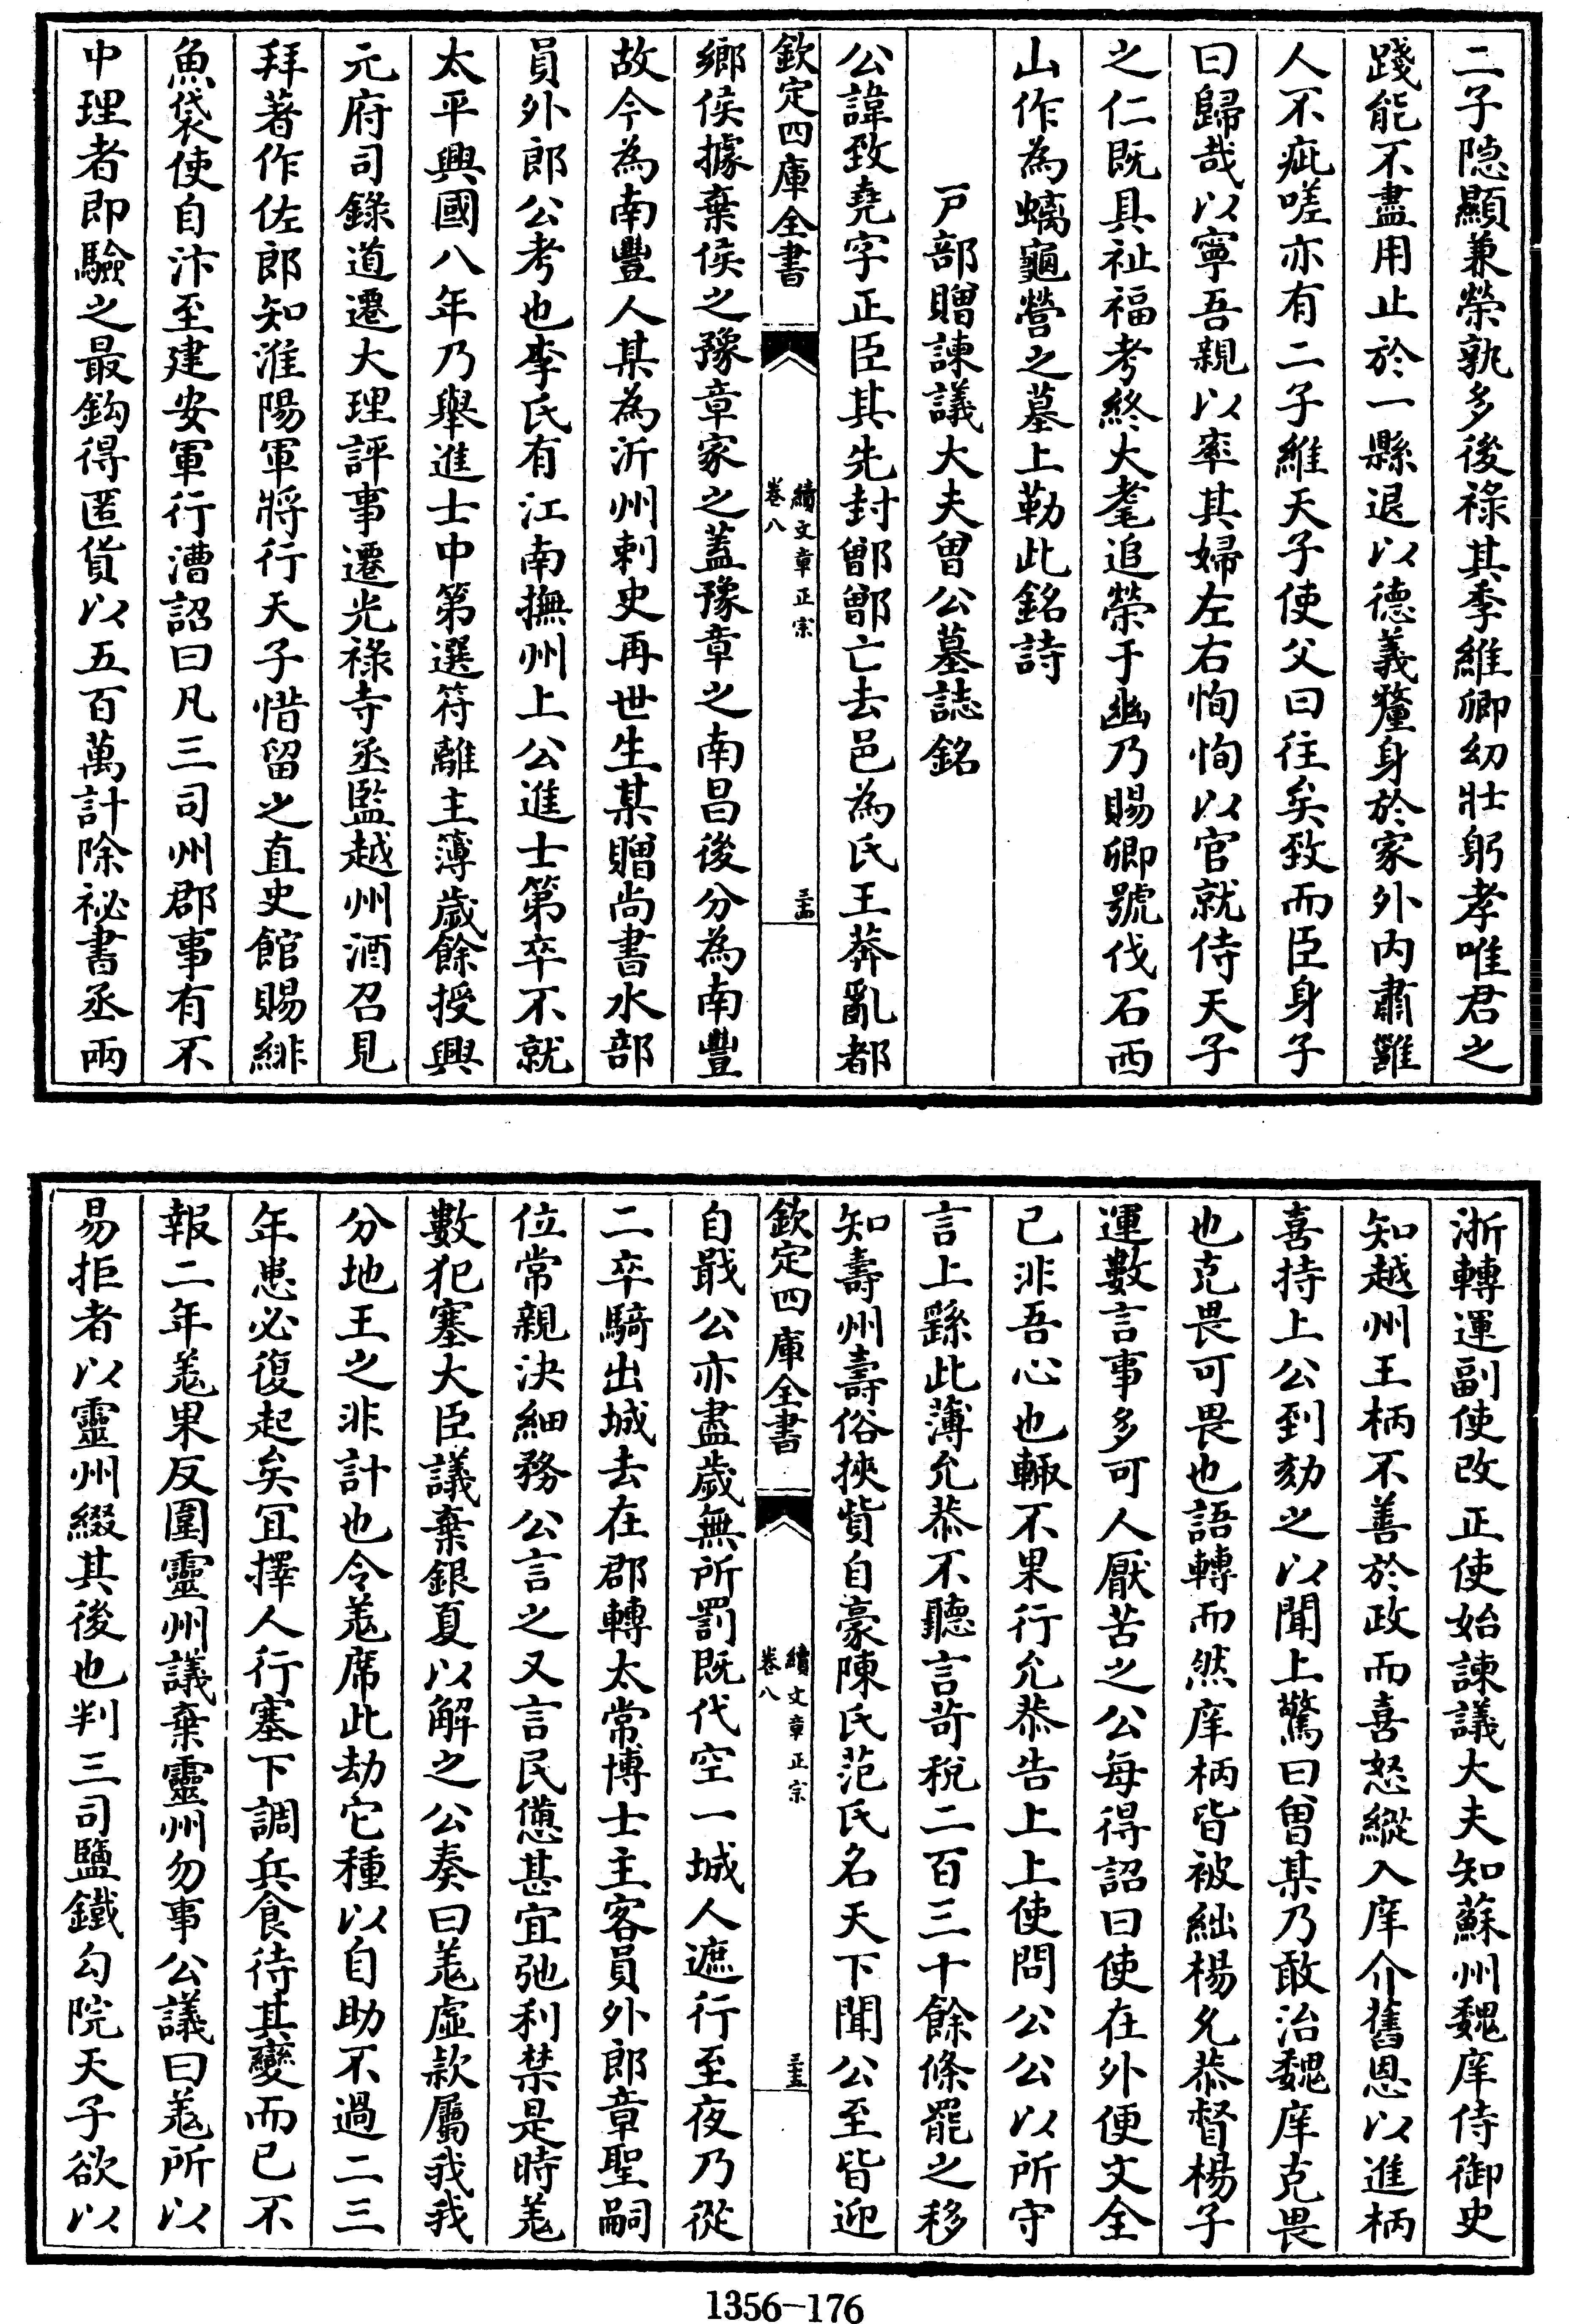 二子隠顯兼榮孰多後祿其季維卿幼壯躬孝唯君之
踐能不盡用止於一縣退以德義釐身於家外内肅雝
人不疵嗟亦有二子維天子使父曰往矣致而臣身子
曰歸哉以寧吾親以率其婦左右恂恂以官就侍天子
之仁既具祉福考終大耄追榮于幽乃賜卿號伐石西
山作為螭龜營之墓上勒此銘詩
戸部贈諫議大夫曾公墓誌銘
公諱致堯字正臣其先封鄫鄫亡去邑為氏王莽亂都
欽定四庫全書
續文章正宗
卷八
三十四
鄉侯據棄侯之豫章家之蓋豫章之南昌後分為南豐
故今為南豐人某為沂州刺史再世生某贈尚書水部
員外郎公考也李氏有江南撫州上公進士第卒不就
太平興國八年乃舉進士中第選符離主簿歲餘授興
元府司錄道遷大理評事遷光祿寺丞監越州酒召見
拜著作佐郎知淮陽軍將行天子惜留之直史館賜緋
魚袋使自汴至建安軍行漕詔曰凡三司州郡事有不
中理者即驗之最鈎得匿貨以五百萬計除祕書丞兩
浙轉運副使改正使始諫議大夫知蘇州魏庠侍御史
知越州王柄不善於政而喜怒縱入庠介舊恩以進柄
喜持上公到劾之以聞上驚曰曾某乃敢治魏庠克畏
也克畏可畏也語轉而然庠柄皆被絀楊允恭督楊子
運數言事多可人厭苦之公每得詔曰使在外便文全
已非吾心也輒不果行允恭告上上使問公公以所守
言上繇此薄允恭不聽言苛稅二百三十餘條罷之移
知壽州壽俗挾貲自豪陳氏范氏名天下聞公至皆迎
欽定四庫全書
續文章正宗
卷八
三十五
自戢公亦盡歲無所罰既代空一城人遮行至夜乃從
二卒騎出城去在郡轉太常博士主客員外郎章聖嗣
位常親決細務公言之又言民憊甚宜弛利禁是時羌
數犯塞大臣議棄銀夏以解之公奏曰羌虛款屬我我
分地王之非計也令羌席此劫它種以自助不過二三
年患必復起矣宜擇人行塞下調兵食待其變而已不
報二年羌果反圍靈州議棄靈州勿事公議曰羌所以
易拒者以靈州綴其後也判三司鹽鐵勾院天子欲以
1356-176